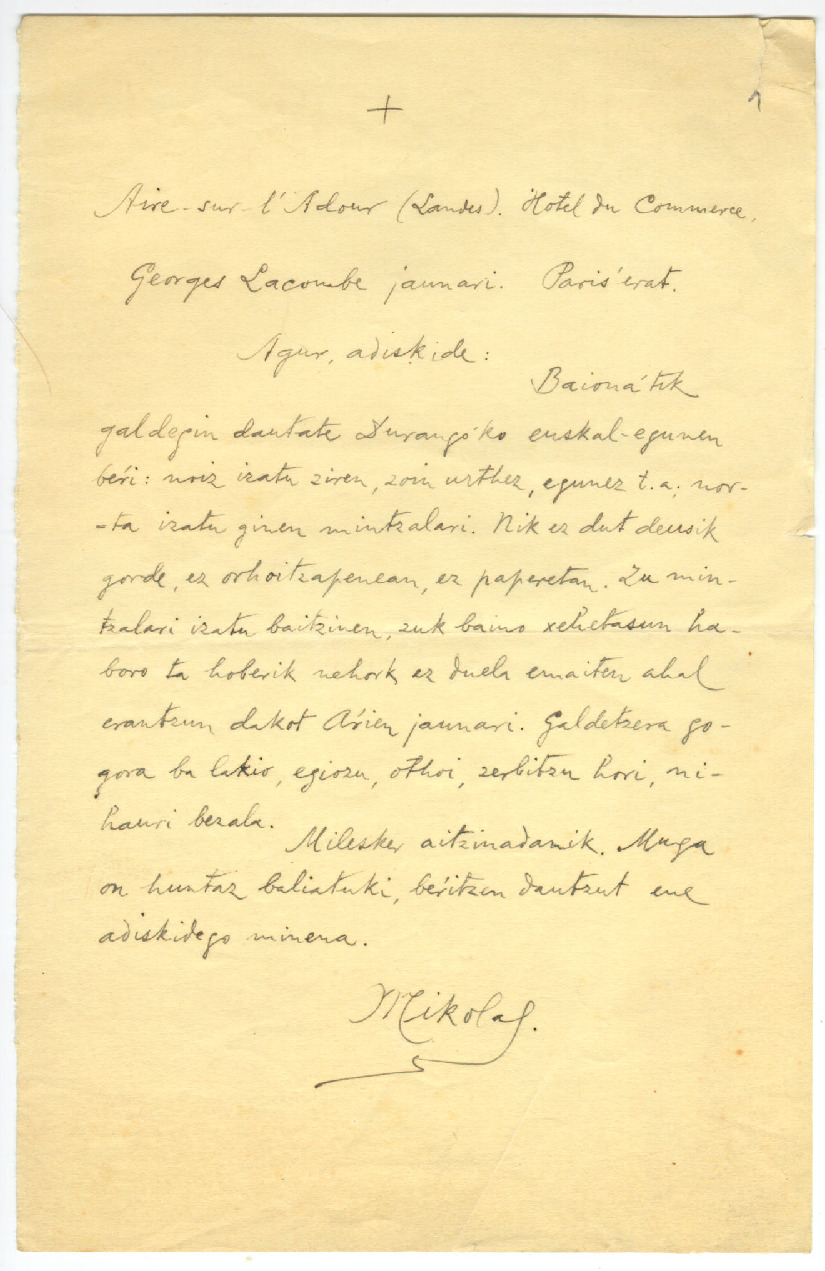 +
Aire-sur-l'Adour (Landes). Hotel du Commerce.
Georges Lacombe jaunari. Paris'erat.
Agur, adiskide:
Baiona'tik
galdegin dautate Durango'ko euskal-egunen
béri: noiz izatu ziren, zoin urthez, egunez t.a; nor-
-ta izatu ginen mintzalari. Nik ez dut deusik
gorde, ez orhoitzapenean, ez paperetan. Zu min-
tzalari izatu baitzinen, zuk baino xehetasun ha-
boro ta hoberik nehork ez duela emaiten ahal
erantzun dakot Aŕien jaunari. Galdetzera go-
gora ba lakio, egiozu, othoi, zerbitzu hori, ni-
hauri bezala.
Milesker aitzinadanik. Muga
on huntaz baliatuki, béritzen dautzut ene
adiskidego minena.
Mikolas.